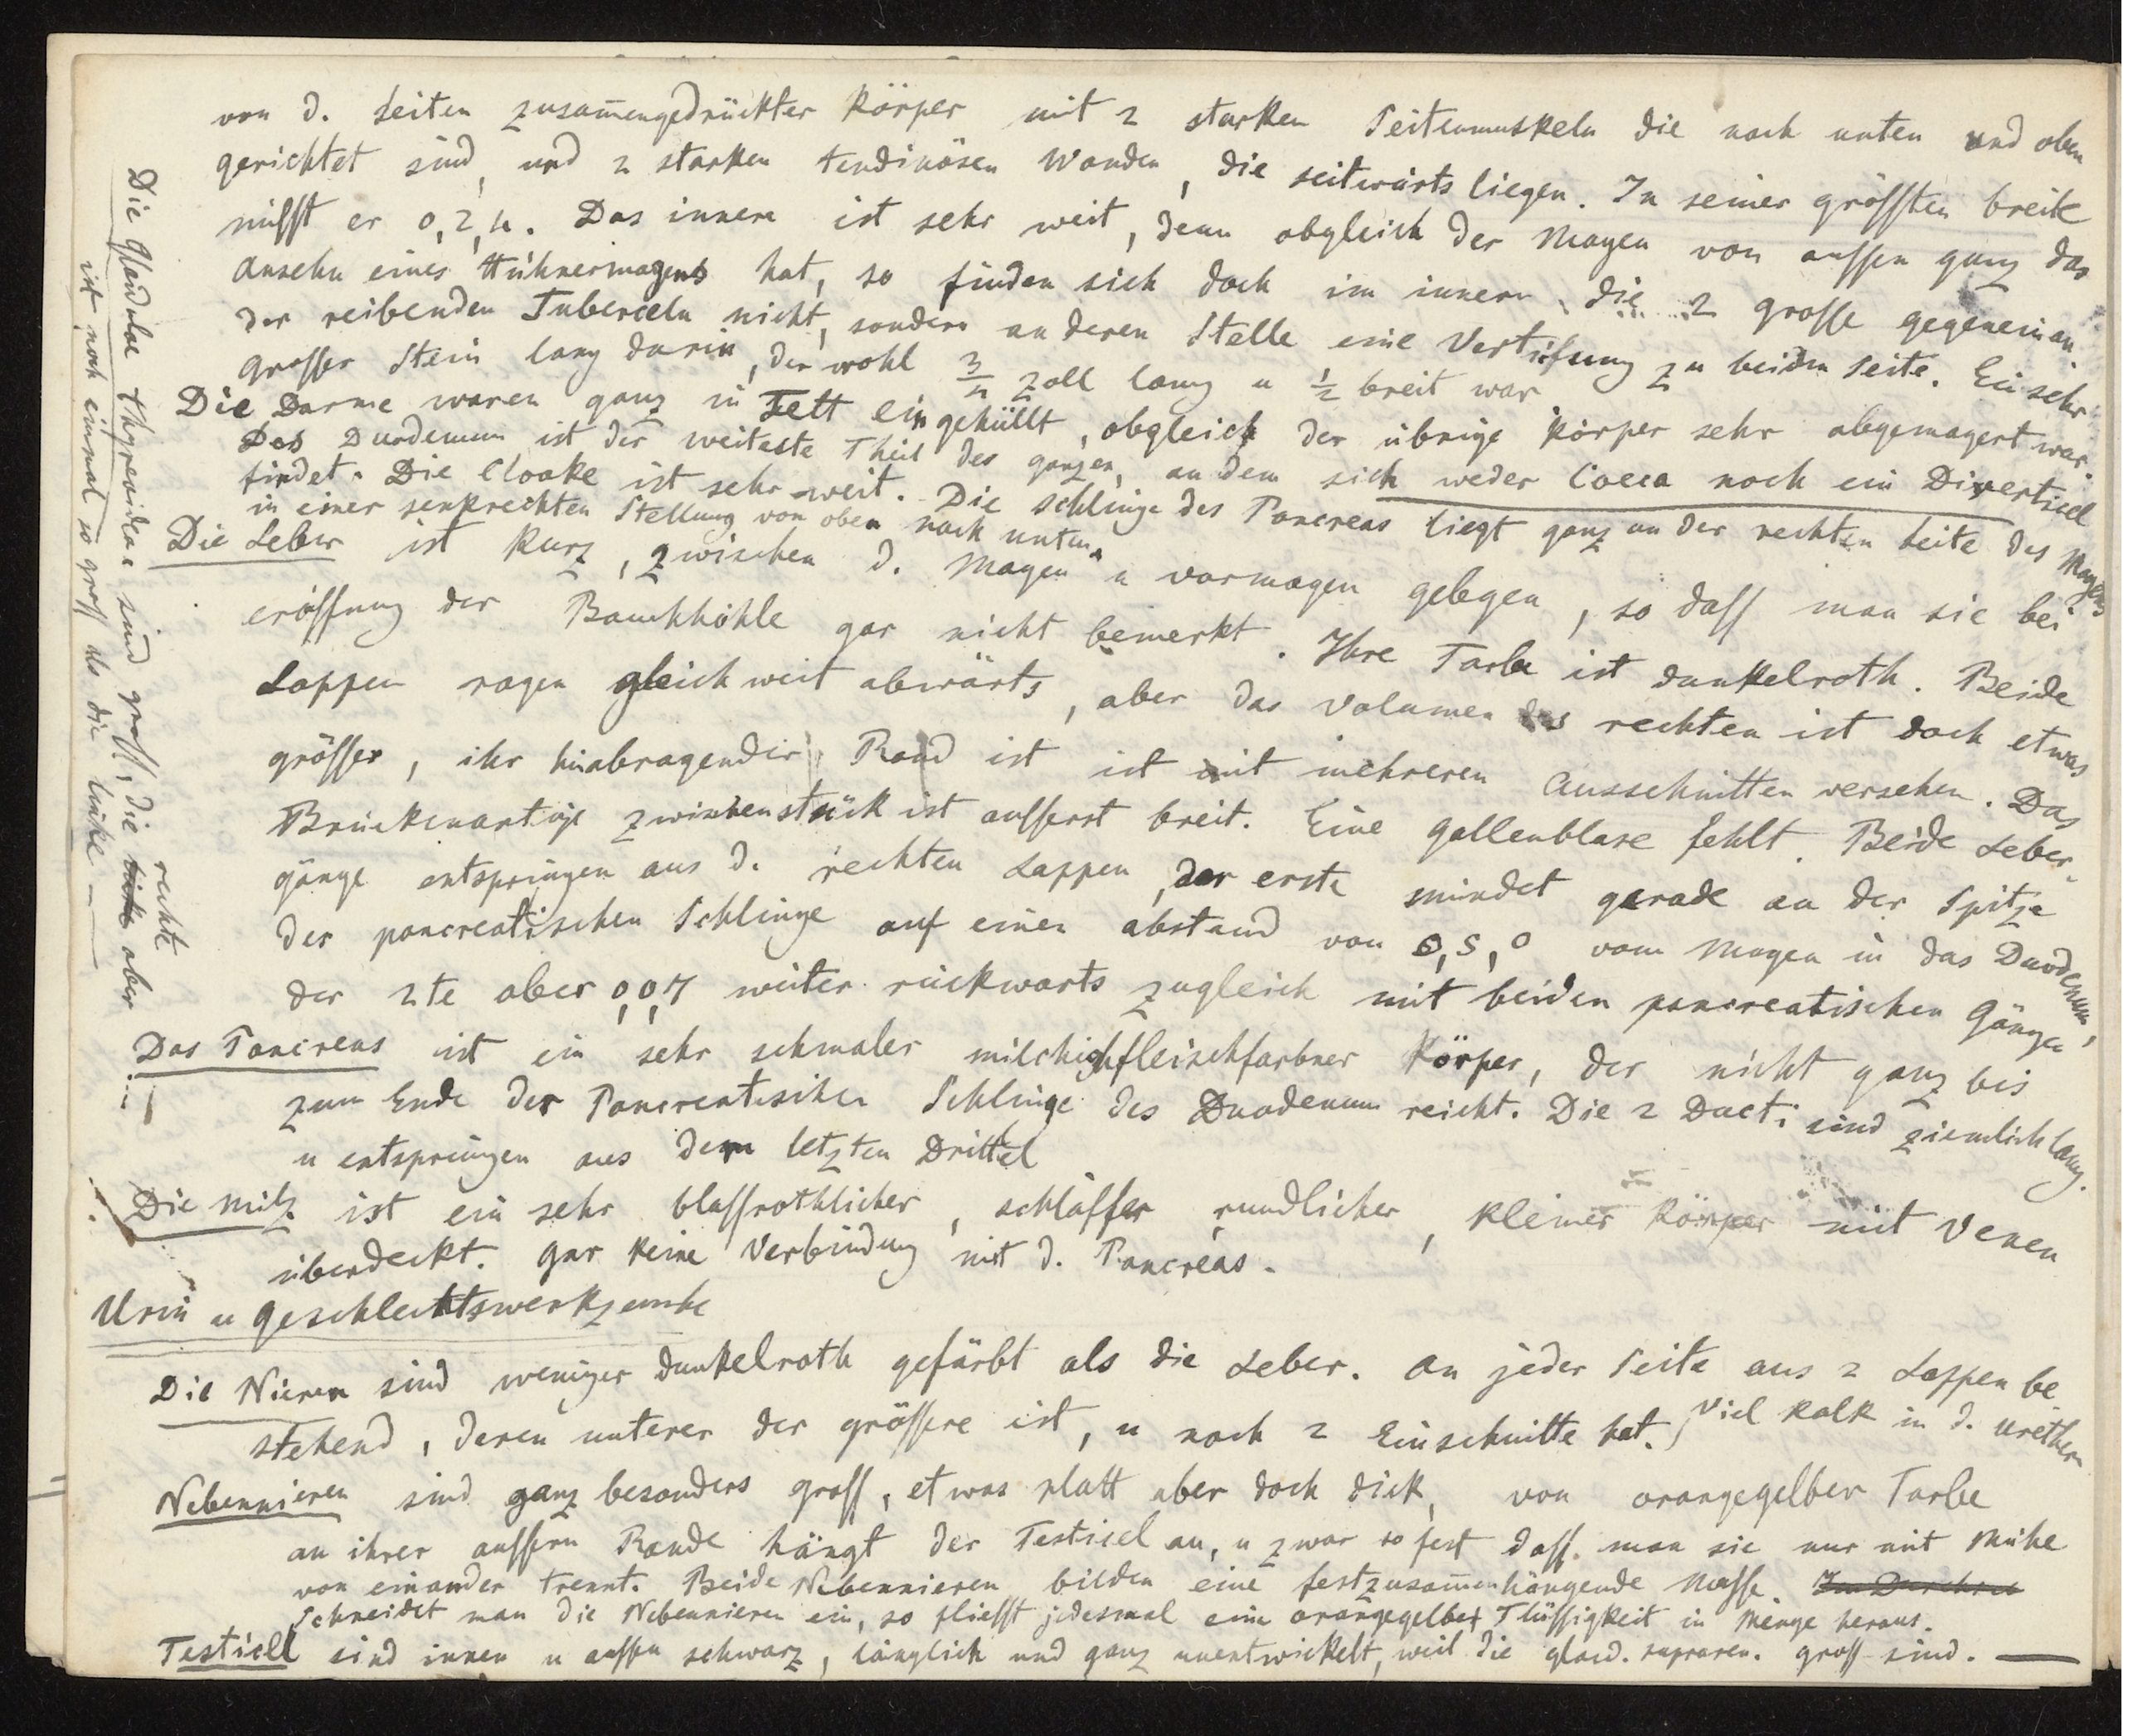 von d. Seiten zusam̄engedrückter Körper mit 2 starken Seitenmuskeln die nach unten und oben
gerichtet sind, und 2 starken tendinösen Wanden, die seitwärts liegen. In seiner grössten breite
misst er 0,2,4. Das innere ist sehr weit, denn obgleich der Magen von aussen ganz das
Ansehn eines Hühnermagens hat, so finden sich doch im innern die 2 grosse gegeneinan.
der reibenden Tuberceln nicht, sondern an deren Stelle eine Vertiefung zu beiden Seite. Ein sehr
grosser Stein lag darin, der wohl 3/4 Zoll lang u 1/2 breit war
Die Darme waren ganz in Fett eingehüllt, obgleich der übrige Körper sehr abgemagert war.
Das Duodenum ist der weiteste Theil des ganzen, an dem sich weder Coeca noch ein Divertikel
findet. Die Cloake ist sehr weit. Die Schlinge des Pancreas liegt ganz an der rechten Seite des Magens
in einer senkrechten Stellung von oben nach unten.
Die Leber ist kurz, zwischen d. Magen u vormagen gelegen, so dass man sie bei
eröffnung der Bauchhöhle gar nicht bemerkt. Ihre Farbe ist dunkelroth. Beide
Lappen ragen gleich weit abwärts, aber das Volumen des rechten ist doch etwas
grösser, ihr hinabragender Rand ist ist mit mehreren Ausschnitten versehen. Das
Brückenartige zwischenstück ist ausserst breit. Eine Gallenblase fehlt. Beide Leber-
gänge entspringen aus d. rechten Lappen, der erste mündet gerade an der Spitze
der pancreatischen Schlinge auf einen abstand von 0,5,0 vom Magen in das Duodenum,
der 2te aber 0,0,7 weiter rückwarts zugleich mit beiden pancreatischen Gängen
Das Pancreas ist ein sehr schmaler milchigfleischfarbner Körper, der nicht ganz bis
zum Ende der Pancreatischen Schlinge des Duodenum reicht. Die 2 Ducti sind ziemlich lang.
u entspringen aus dem letzten Drittel
Die Milz ist ein sehr blassrothlicher, schlaffer rundlicher, kleiner Körper mit Venen
überdeckt. Gar keine Verbindung mit d. Pancreas.
Urin u Geschlechtswerkzeuche
Die Nieren sind weniger dunkelroth gefärbt als die Leber. An jeder Seite aus 2 Lappen be-
stehend, deren unterer der grössere ist, u noch 2 Einschnitte hat. Viel Kalk in d. Urethern
Nebennieren sind ganz besonders gross, etwas platt aber doch dick, von orangegelber Farbe
an ihrer aussern Rande hängt der Testicel an, u zwar so fest dass man sie nur mit Mühe
von einander trennt. Beide Nebennieren bilden eine festzusam̄enhängende Masse. Im Durchsch
Schneidet man die Nebennieren ein, so fliesst jedesmal eine orangegelbe Flüssigkeit in Menge heraus.
Testicell sind innen u aussen schwarz, länglich und ganz unentwickelt, weil die gland. supraren. gross sind.
Die Glandulae thyreoideae sind gross, die rechte aber
ist noch einmal so gross als die linke